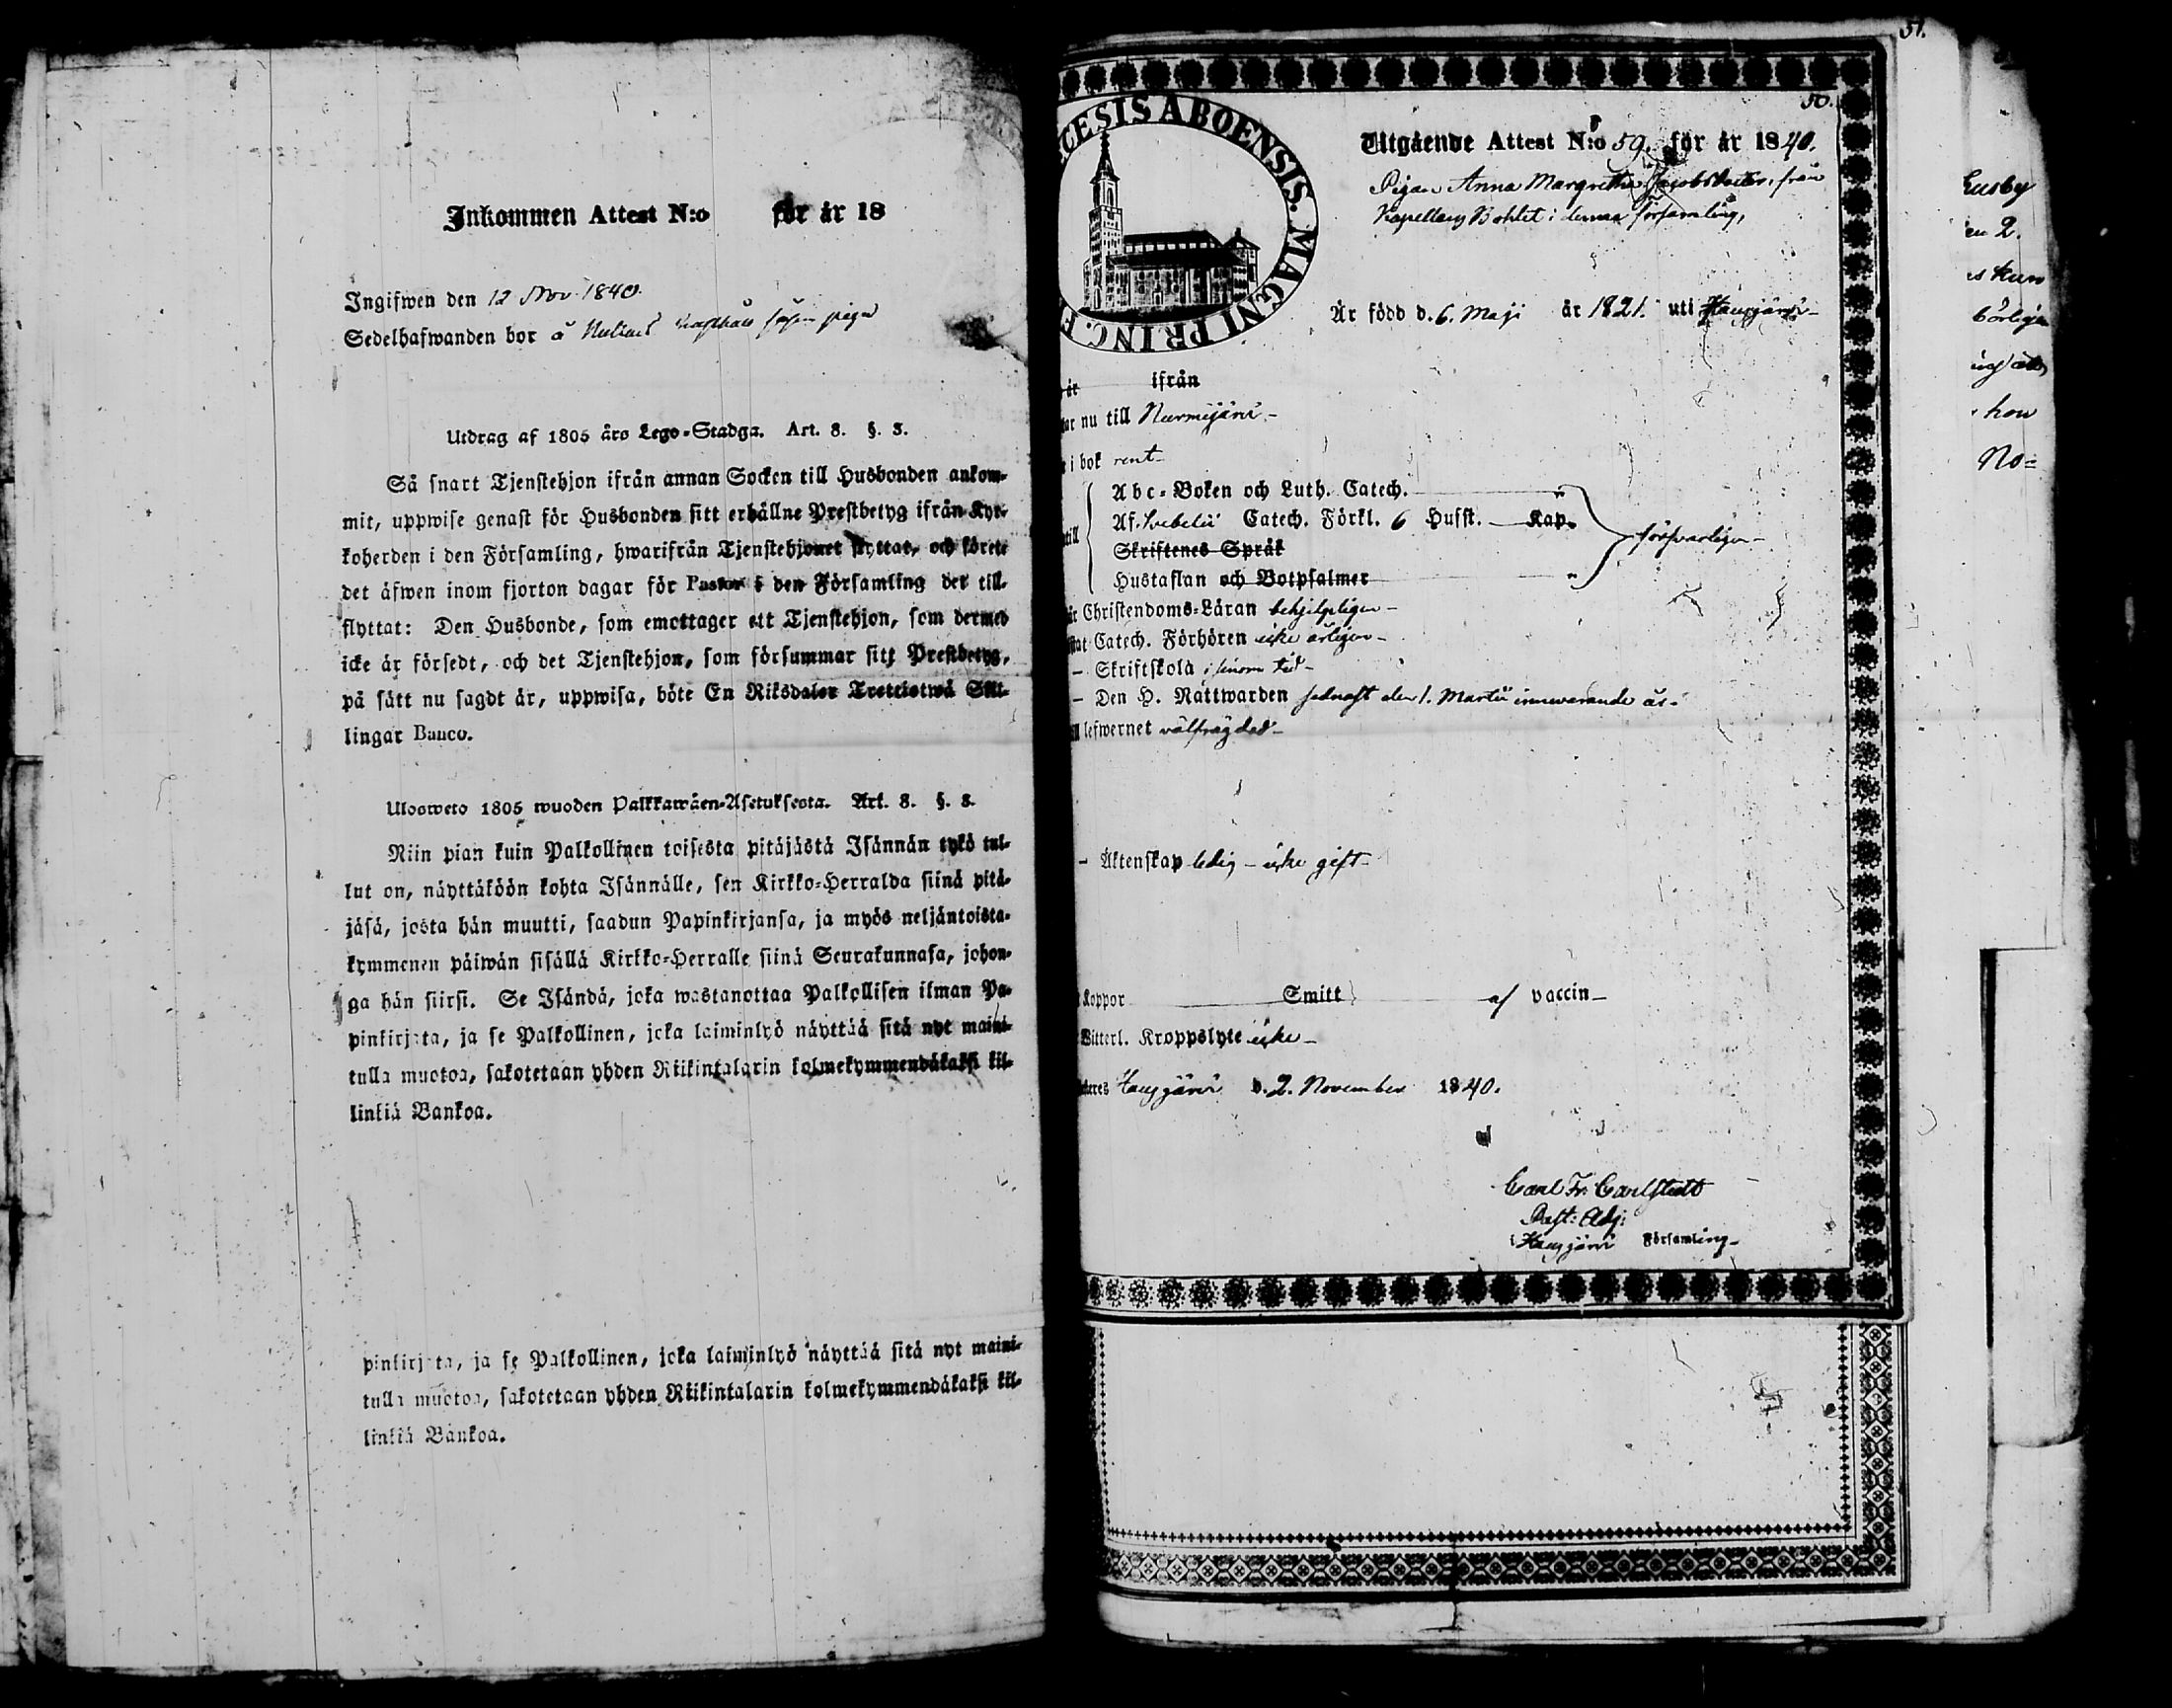 Inkommen Attest N:o för år 18
Ingifwen den 12 Nov 1840.
Sedelhafwanden bor å
Utdrag af 1805 års Lego-Stadga. Art. 8. §. 8.
Så snart Tjenstehjon ifrån annan Socken till Husbonden ankom-
mit, uppwise genast för Husbonden sitt erhållne Prestbetyg ifrån Kyr-
koherden i den Församling, hwarifrån Tjenstehjonet flyttat, och förete
det äfwen inom fjorton dagar för Pastor i den Församling det till-
flyttat: Den Husbonde, som emottager ett Tjenstehjon, som dermed
icke är försedt, och det Tjenstehjon, som försummar sitt Prestbetyg,
på sätt nu sagdt är, uppwisa, böte En Riksdaler Trettiotwå Skil-
lingar Banco.
Ulosweto 1805 wuoden Palkkawäen-Asetuksesta. Art. 8. §. 8.
Niin pian kuin Palkollinen toisesta pitäjästä Isännän tykö tul-
lut on, näyttäköön kohta Isännälle, sen Kirkko-Herralda siinä pitä-
jäsä, josta hän muutti, saadun Papinkirjansa, ja myös neljäntoista-
kymmenen päiwän sisällä Kirkko-Herralle siinä Seurakunnasa, johon-
ga hän siirsi. Se Isändä, joka wastanottaa Palkollisen ilman Pa-
pinkirjata, ja se Palkollinen, joka laiminlyö näyttää sitä nyt maini-
tulla muotoa, sakotetaan yhden Riikintalarin kolmekymmendäkaksi kil-
linkiä Bankoa.
pinkirjata, ja se Palkollinen, joka laiminlyö näyttää sitä nyt maini-
tulla muotoa, sakotetaan yhden Riikintalarin kolmekymmendäkaksi kil-
linkiä Bankoa.
51.
50.
CESIS ABOENSIS. MAGNI PRINC. F
Utgående Attest N:o 59. för år 1840.
Pigan Anna Margretha Jacobsdotter, från
Kapellans Bohlet i denna församling,
Är född d. 6. Maji år 1821. uti Hausjärvi
år ifrån
ar nu till Nurmijärvi
i bok rent
Abc-Boken och Luth. Catech. "
till Af. Svebelii Catech. Förkl. 6 Hufst. Kap. försvarligen
Skriftenes Språk
Hustaflan och Botpsalmer "
är Christendoms-Läran behjelpligen
stat Catech. Förhören icke årligen
- Skriftskola i sinom tid
- Den H. Nattwarden sednast den 1. Martii innevarande år.
ll lefwernet välfrägdad
- Äktenskap ledig - icke gift
Koppor Smitt af vaccin
Witterl. Kroppslyte icke
teres Hausjärvi d. 2. November 1840.
Carl Fr. Carlstedt
Past: Adj:
i Hausjärvi Församling
Husby
en 2.
börligen
hon
No=